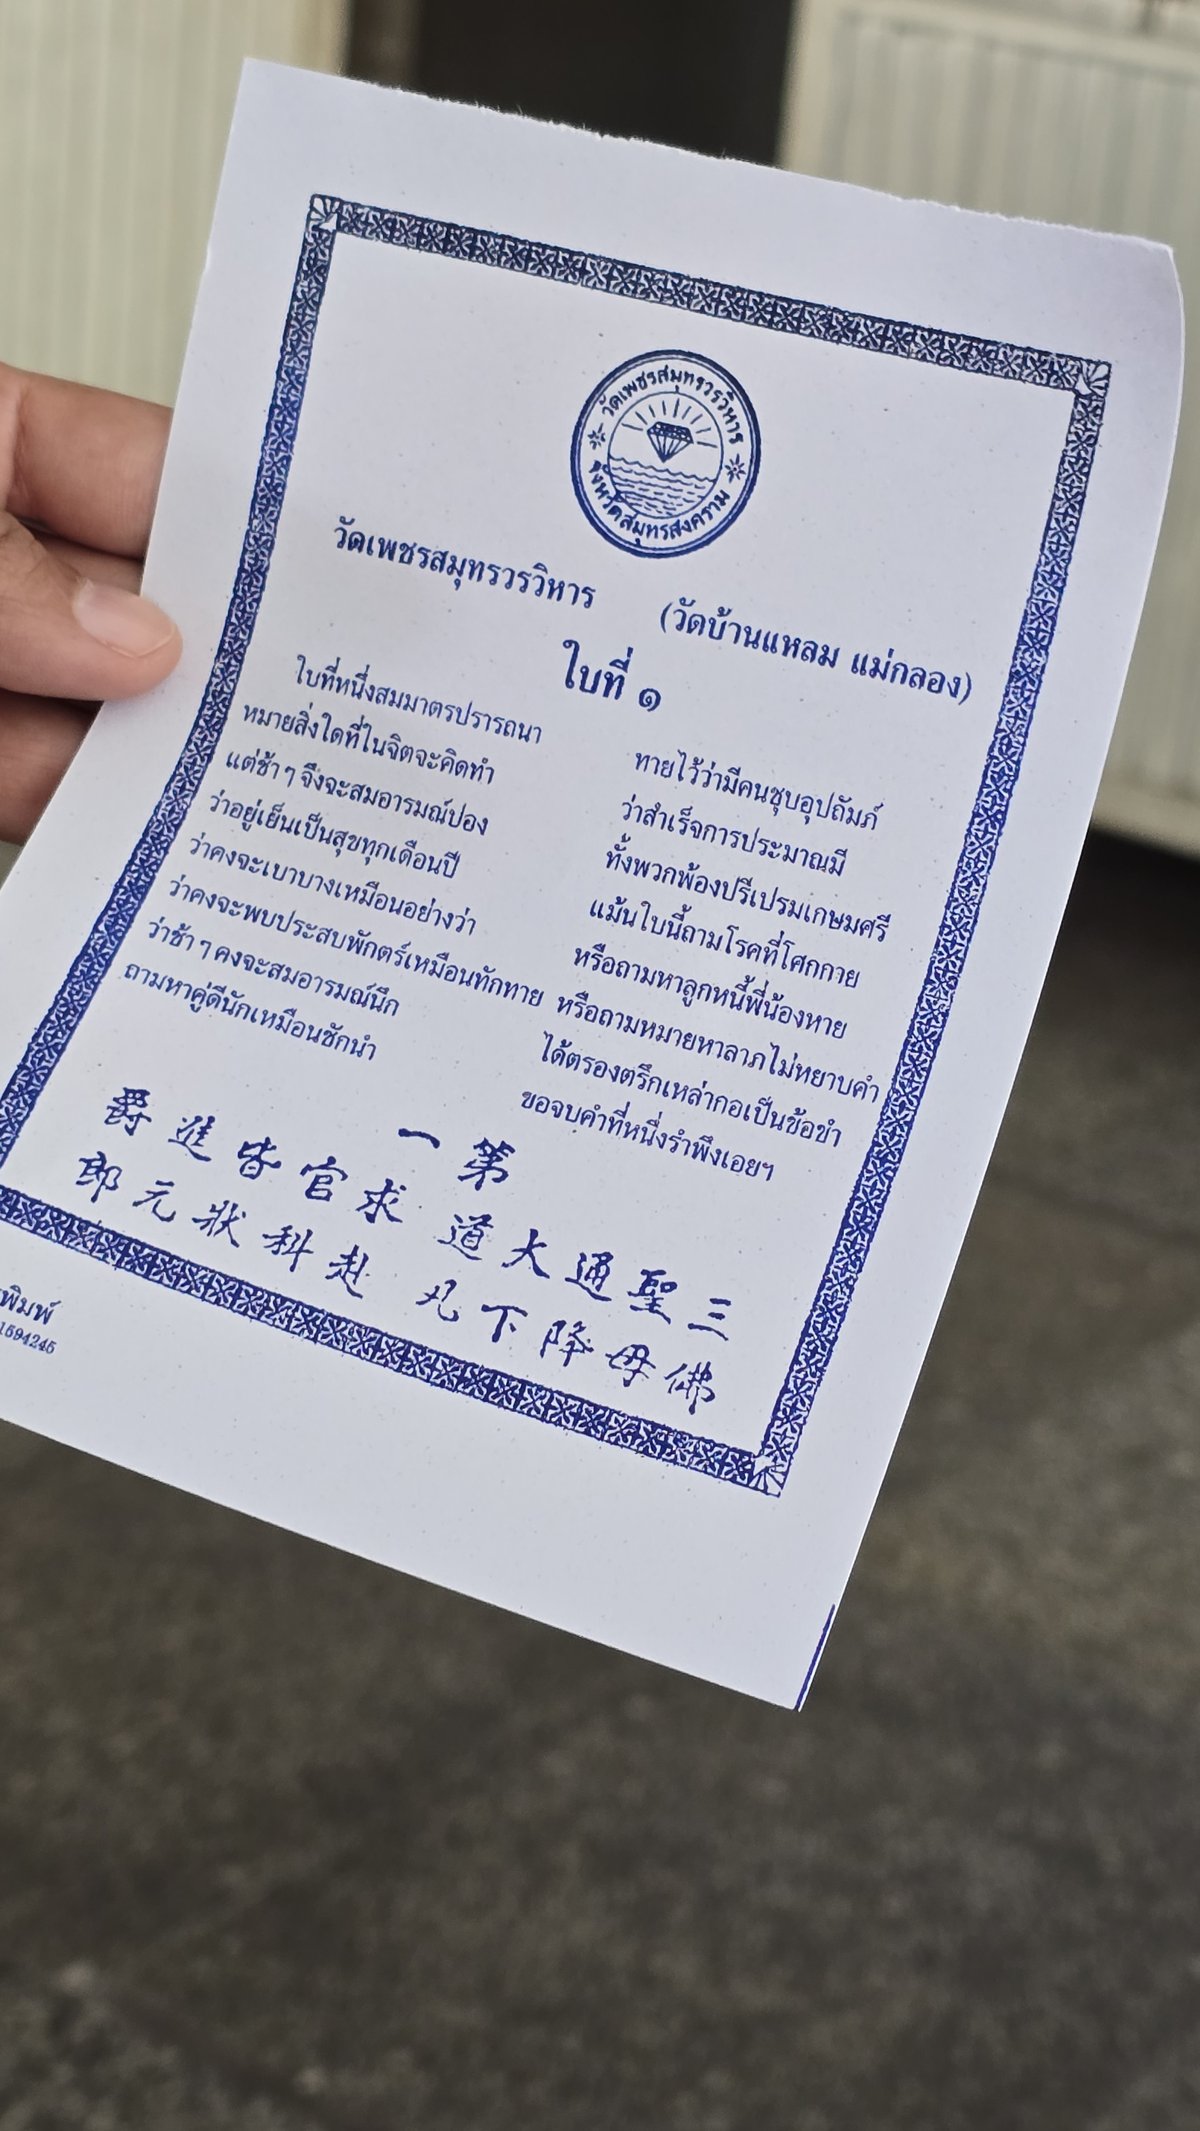 วัดเพชรสมุทรวรวิหาร
จังหวัดสมุทรสงคราม
วัดเพชรสมุทรวรวิหาร (วัดบ้านแหลม แม่กลอง)
ใบที่ ๑
ใบที่หนึ่งสมมาตรปรารถนา ทายไว้ว่ามีคนชุบอุปถัมภ์
หมายสิ่งใดที่ในจิตจะคิดทำ ว่าสำเร็จการประมาณมี
แต่ช้าๆ จึงจะสมอารมณ์ปอง ทั้งพวกพ้องปรีเปรมเกษมศรี
ว่าอยู่เย็นเป็นสุขทุกเดือนปี แม้นใบนี้ถามโรคที่โศกกาย
ว่าคงจะเบาบางเหมือนอย่างว่า หรือถามหาลูกหนี้พี่น้องหาย
ว่าคงจะพบประสบพักตร์เหมือนทักทาย หรือถามหมายหาลาภไม่หยาบคำ
ว่าช้าๆ คงจะสมอารมณ์นึก ได้ตรองตรึกเหล่ากอเป็นข้อขำ
ถามหาคู่ดีนักเหมือนชักนำ ขอจบคำที่หนึ่งรำพึงเอยฯ
一第
爵進皆官求 道大通聖三
郎元狀科赴 凡下降母佛
พิมพ์
1594245